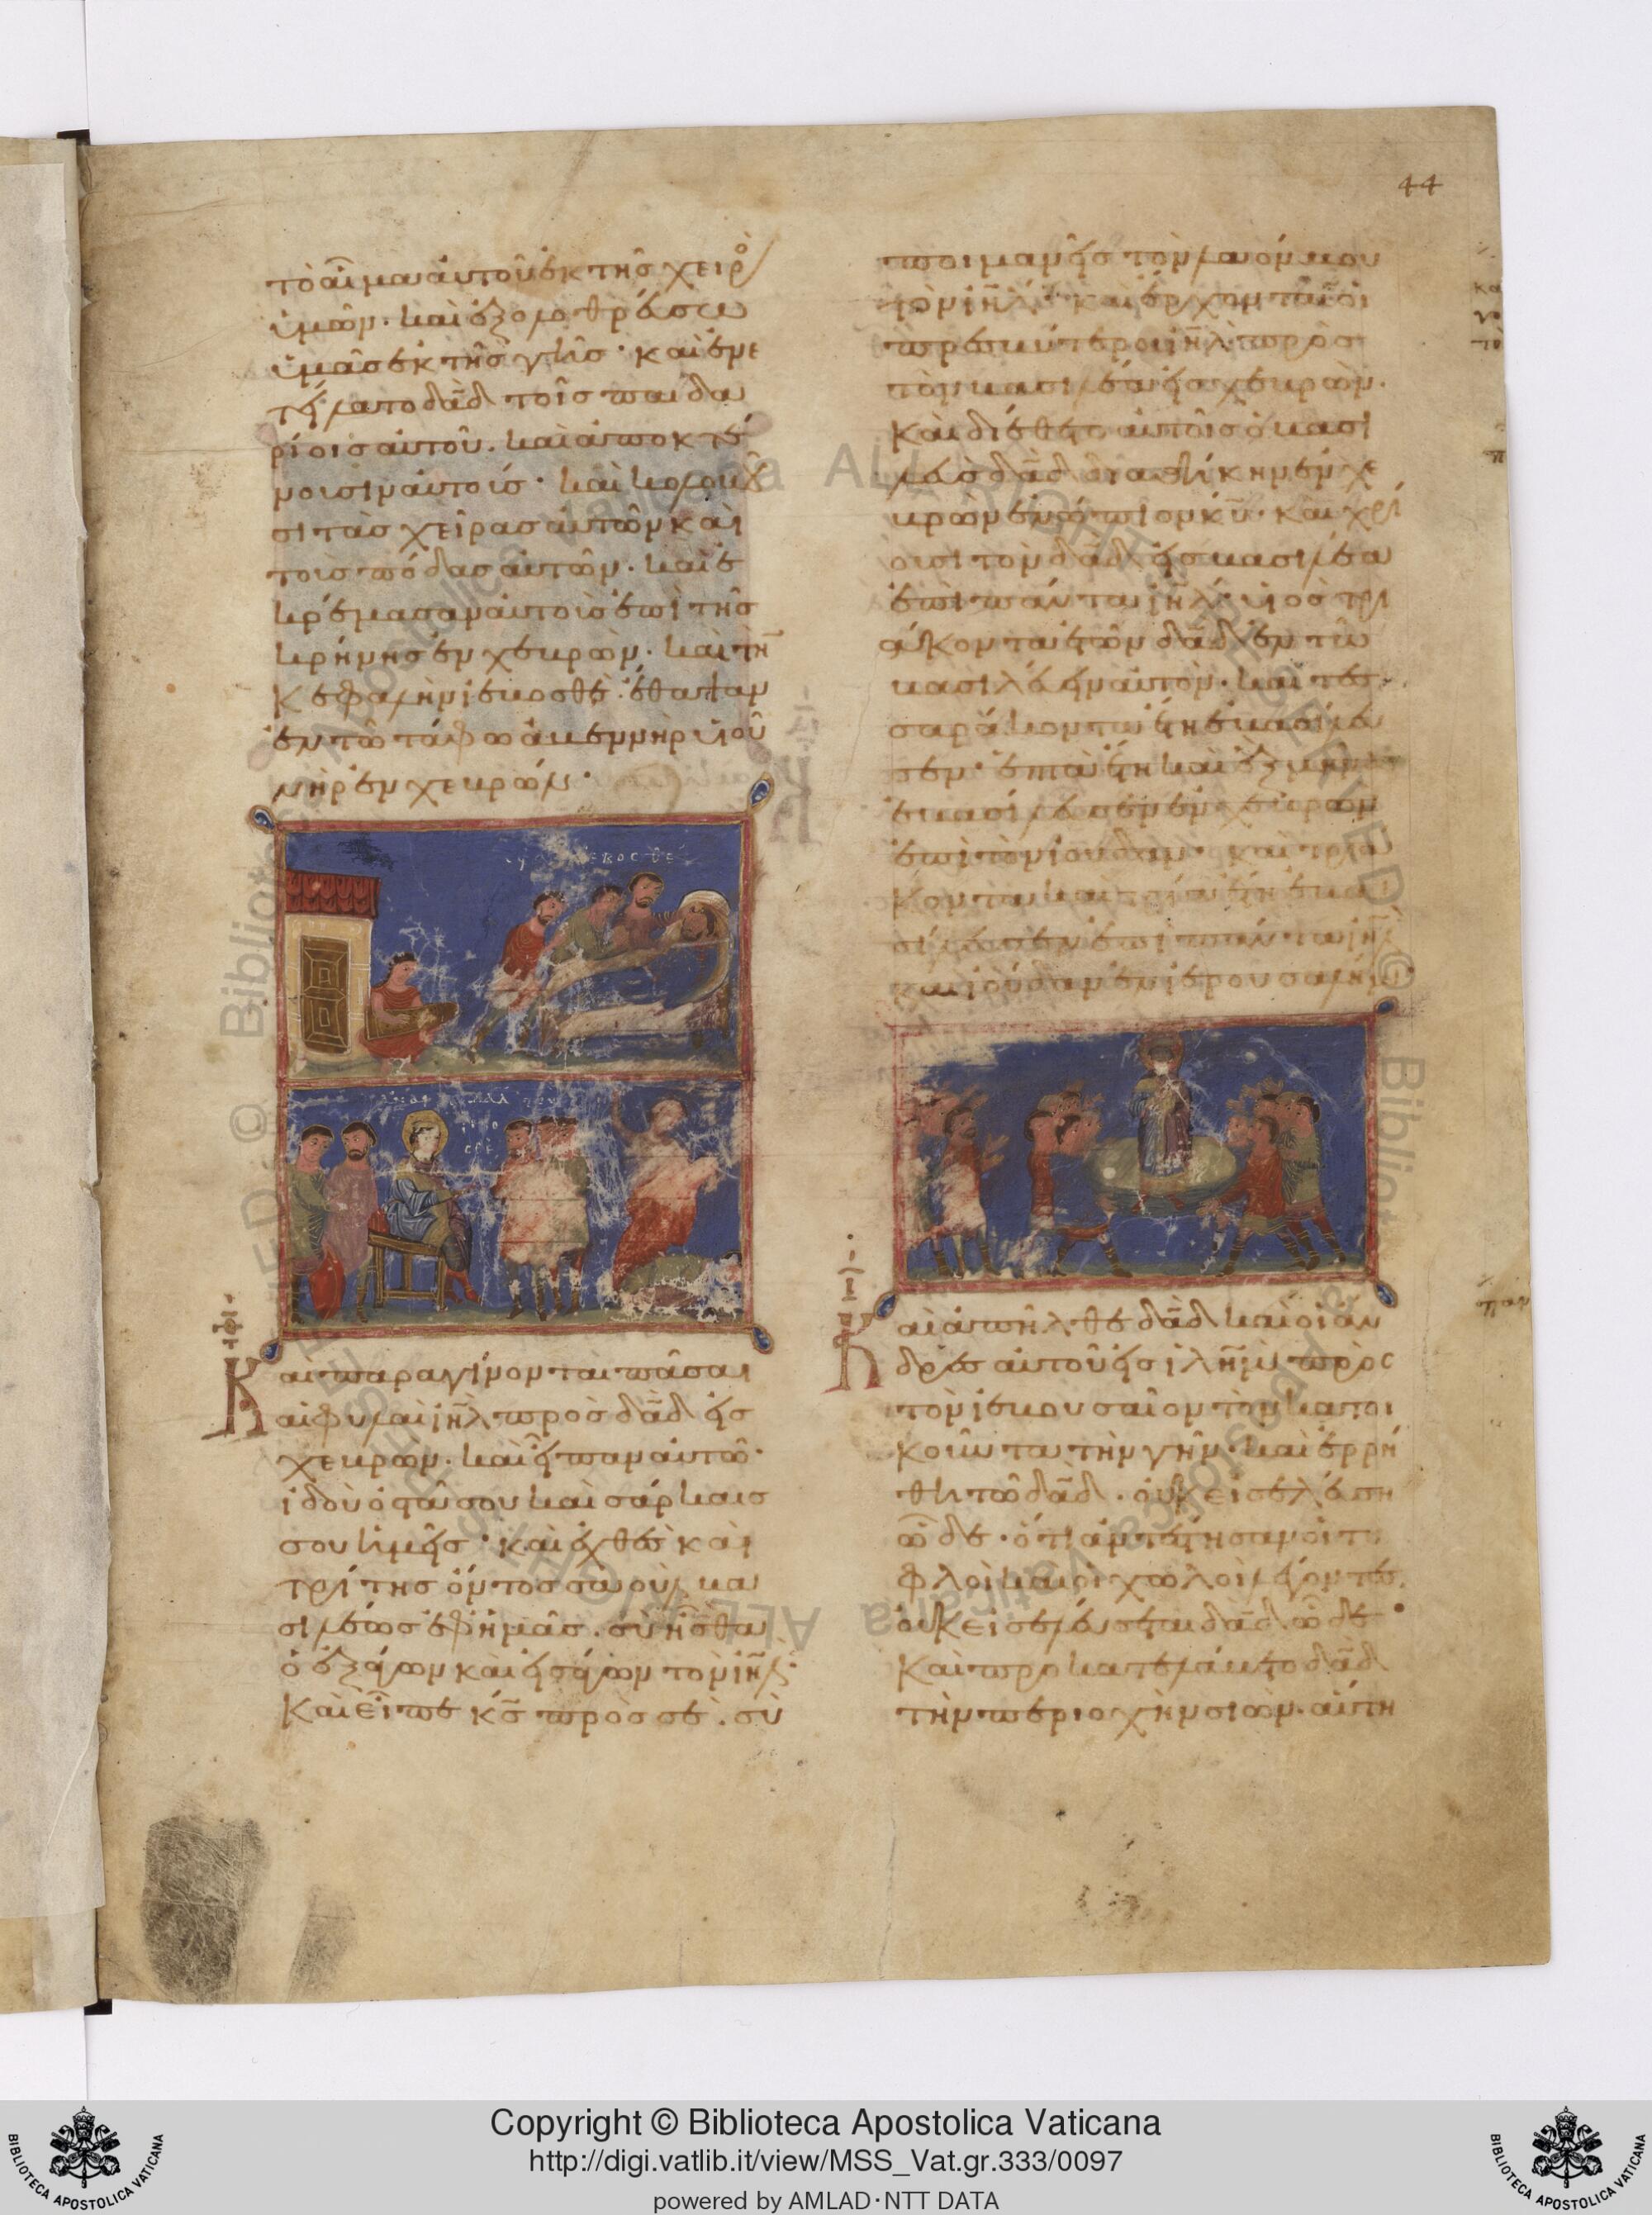 44
τὸ αἷμα αὐτοῦ ἐκ τῆς χειρὸ
ὑμῶν· καὶ ἐξολοθρεύσω
ὑμᾶς ἐκ τῆς γῆς· καὶ ἐνε
τείλατο δᾱδ τοῖς παιδα
ρίοις αὐτοῦ. καὶ ἀποκτέ
νουσιν αὐτούς· καὶ κολοβοῦ
σι τὰς χεῖρας αὐτῶν καὶ
τοὺς πόδας αὐτῶν. καὶ ἐ
κρέμασαν αὐτοὺς ἐπὶ τῆς
κρήνης ἐν χεβρών. καὶ τὴ
κεφαλὴν ἰεβοσθὲ ἔθαψαν
ἐν τῶ τάφω ἀβεννὴρ υἱοῦ
νὴρ ἐν χεβρών·
Καὶ παραγίνονται πᾶσαι
αἱ φυλαὶ ιη̄λ πρὸς δᾱδ εἰς
χεβρών. καὶ εἶπαν αὐτῶ·
ἰδοὺ ὀστᾶ σου καὶ σάρκες
σου ἡμεῖς· καὶ ἐχθὲς καὶ
τρίτης ὄντος σαοὺλ βα
σιλέως ἐφ ἡμᾶς. σὺ ἦσθα
ὁ ἐξάγων καὶ εἰσάγων τὸν ιη̄λ·
Καὶ εἶπε κ̄ς πρὸς σὲ. σὺ
ποιμανεῖς τὸν λαόν μου
τὸν ιη̄λ· καὶ ἔρχονται οἱ
πρεσβύτεροι ιη̄λ πρὸς
τὸν βασιλέα εἰς χεβρών.
Καὶ διέθετο αὐτοῖς ὁ βασι
λεὺς δᾱδ διαθήκην ἐν χε
βρὼν ἐνώπιον κ̄υ· καὶ χρί
ουσι τὸν δᾱδ εἰς βασιλέα
ἐπὶ πάντα ιη̄λ· υἱὸς τρι
άκοντα ἐτῶν δᾱδ ἐν τῶ
βασιλεῦσαι αὐτὸν· καὶ τεσ
σαράκοντα ἔτη ἐβασίλευ
σεν· ἑπτὰ ἔτη καὶ ἓξ μῆνας
ἐβασίλευσεν ἐν χεβρὼν
ἐπὶ τὸν ἰούδαν· καὶ τριά
κοντα καὶ τρία ἔτη ἐβα
σίλευσεν ἐπὶ πάντα ιη̄λ
καὶ ἰούδαν ἐν ἱερουσαλήμ·
Καὶ ἀπῆλθε δᾱδ καὶ οἱ ἄν
δρες αὐτοῦ εἰς ιλη̄μ πρὸς
τὸν ἰεβουσαῖον τὸν κατοι
κοῦντα τὴν γῆν· καὶ ἐρρέ
θη τῶ δᾱδ. οὐκ εἰσελεύση
ὧδε· ὅτι ἀντέστησαν οἱ τυ
φλοὶ καὶ οἱ χωλοὶ λέγοντες.
οὐκ εἰσελεύσεται δᾱδ ὧδε·
Καὶ προκατελάβετο δᾱδ
τὴν περιοχὴν σιών. αὕτη
Copyright © Biblioteca Apostolica Vaticana
http://digi.vatlib.it/view/MSS_Vat.gr.333/0097
powered by AMLAD·NTT DATA
BIBLIOTECA APOSTOLICA VATICANA
BIBLIOTECA APOSTOLICA VATICANA